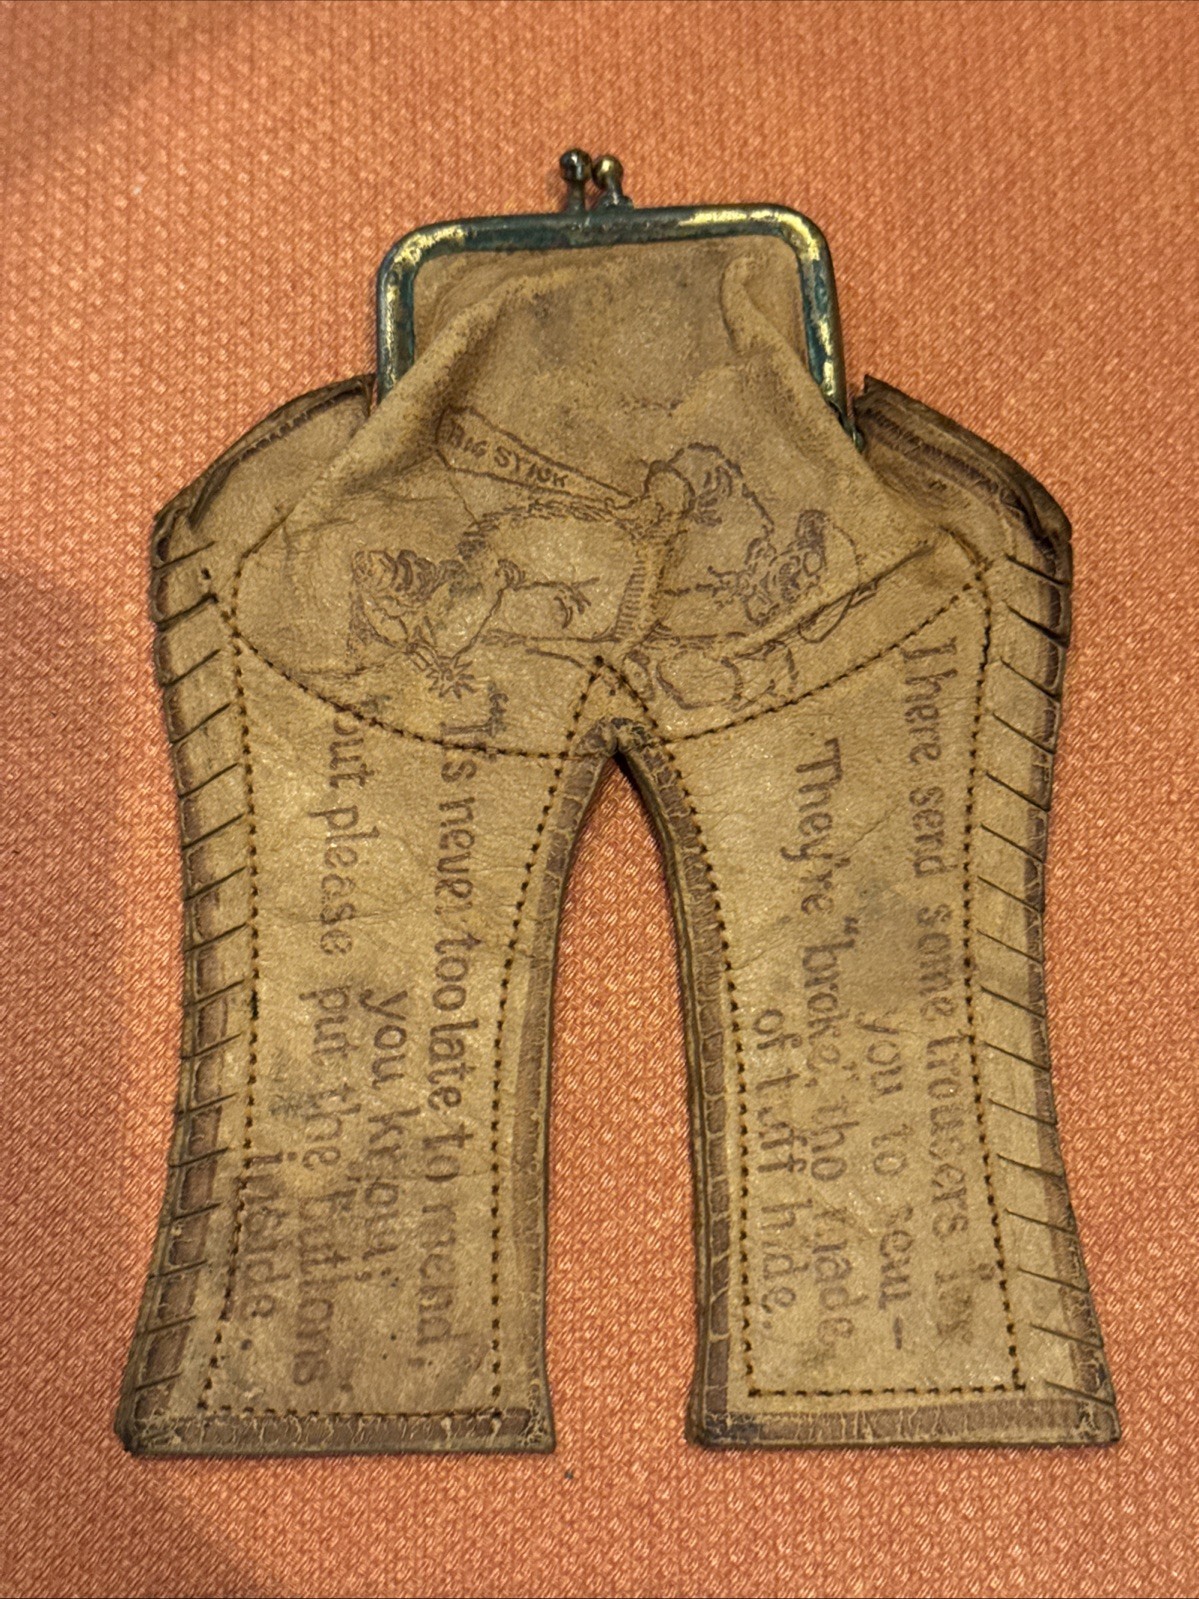 BIG STICK
I here send some trousers
you to sew—
They're "broke," tho made
of tuff hide.
"It's never too late to mend,"
you know;
but please put the buttons
inside.